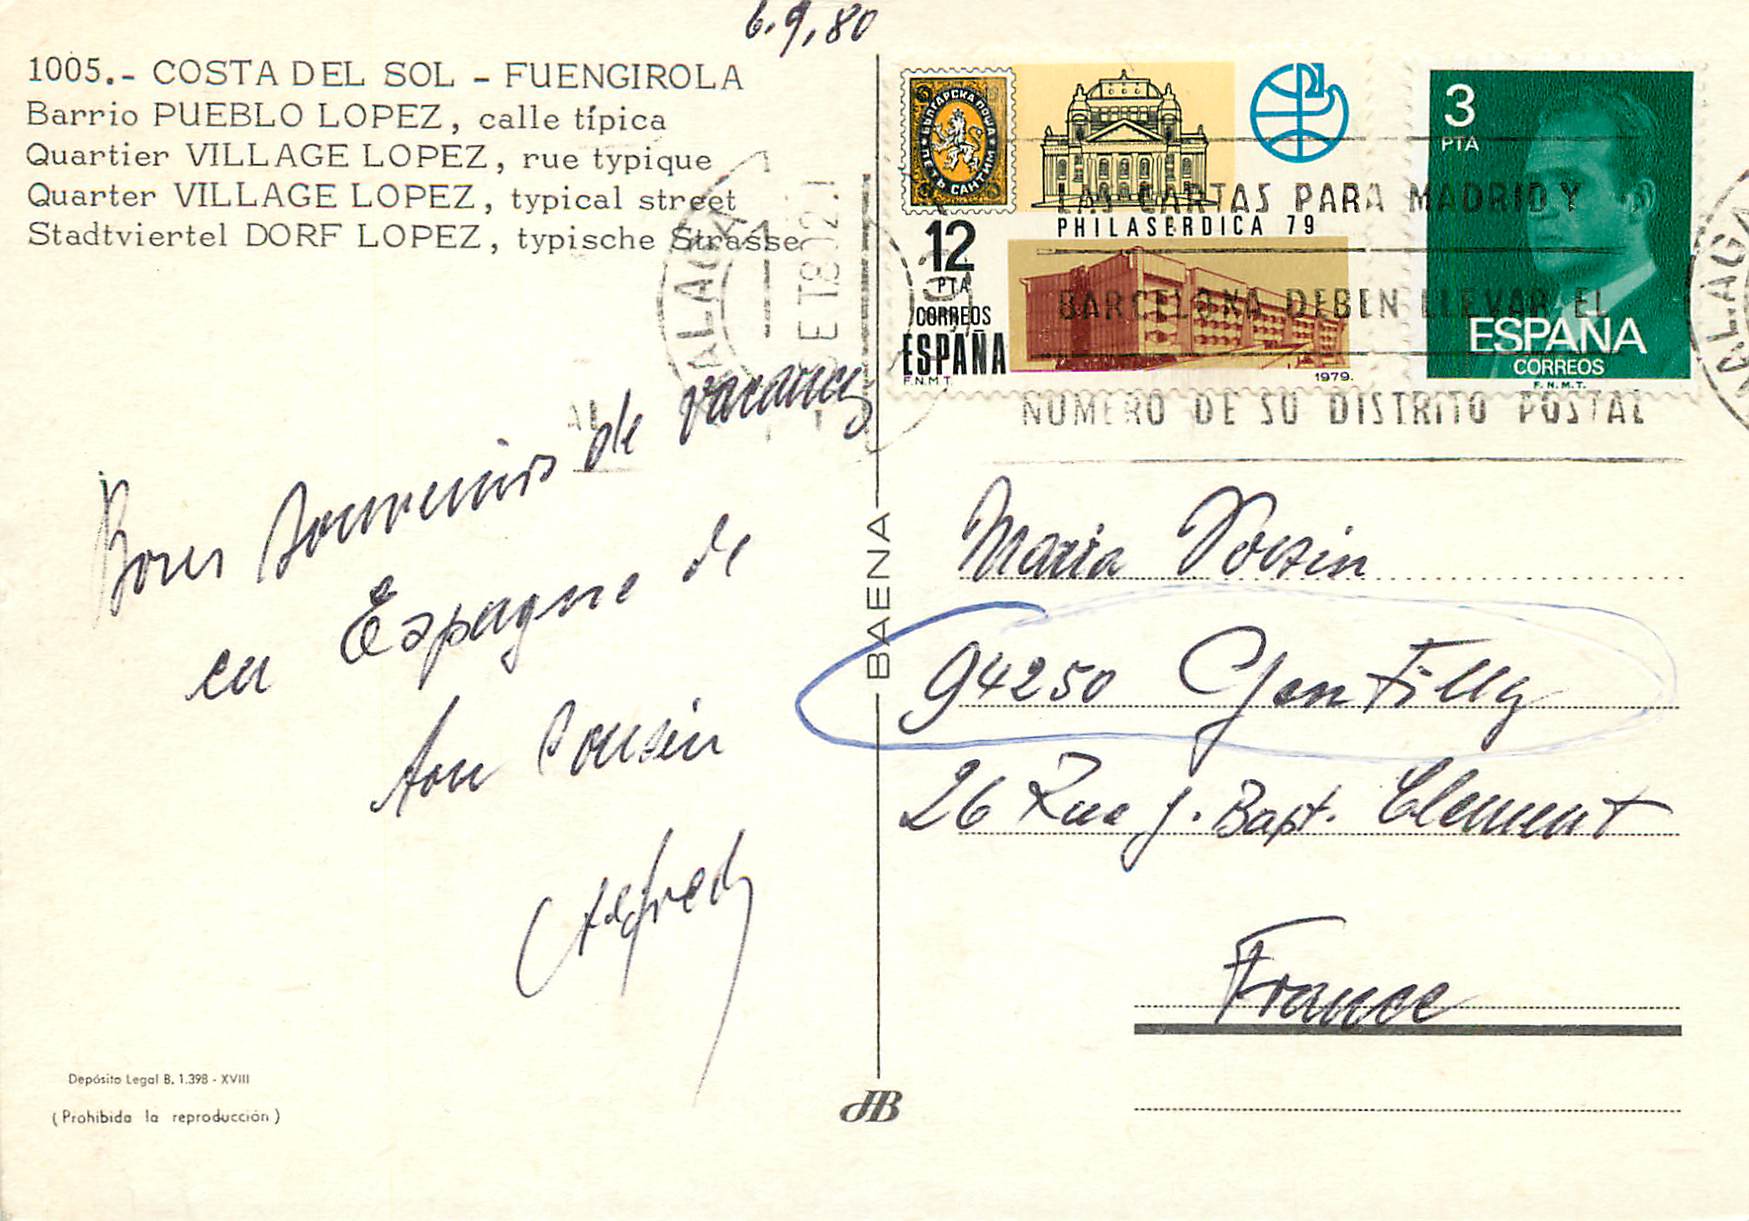 6.9.80
1005.- COSTA DEL SOL - FUENGIROLA
Barrio PUEBLO LOPEZ, calle típica
Quartier VILLAGE LOPEZ, rue typique
Quarter VILLAGE LOPEZ, typical street
Stadtviertel DORF LOPEZ, typische Strasse
Bons souvenirs de vacances
en Espagne de
ton Cousin
Alfred
Depósito Legal B. 1.398 - XVIII
(Prohibida la reproducción)
BAENA
JB
БЪЛГАРСКА ПОЩА
САНТИМ
PHILASERDICA 79
12
PTA
CORREOS
ESPAÑA
F.N.M.T.
1979.
3
PTA
ESPAÑA
CORREOS
F.N.M.T.
MALAGA
LAS CARTAS PARA MADRID Y
BARCELONA DEBEN LLEVAR EL
NUMERO DE SU DISTRITO POSTAL
MALAGA
Maria Voisin
94250 Gentilly
26 Rue J. Bapt. Clement
France